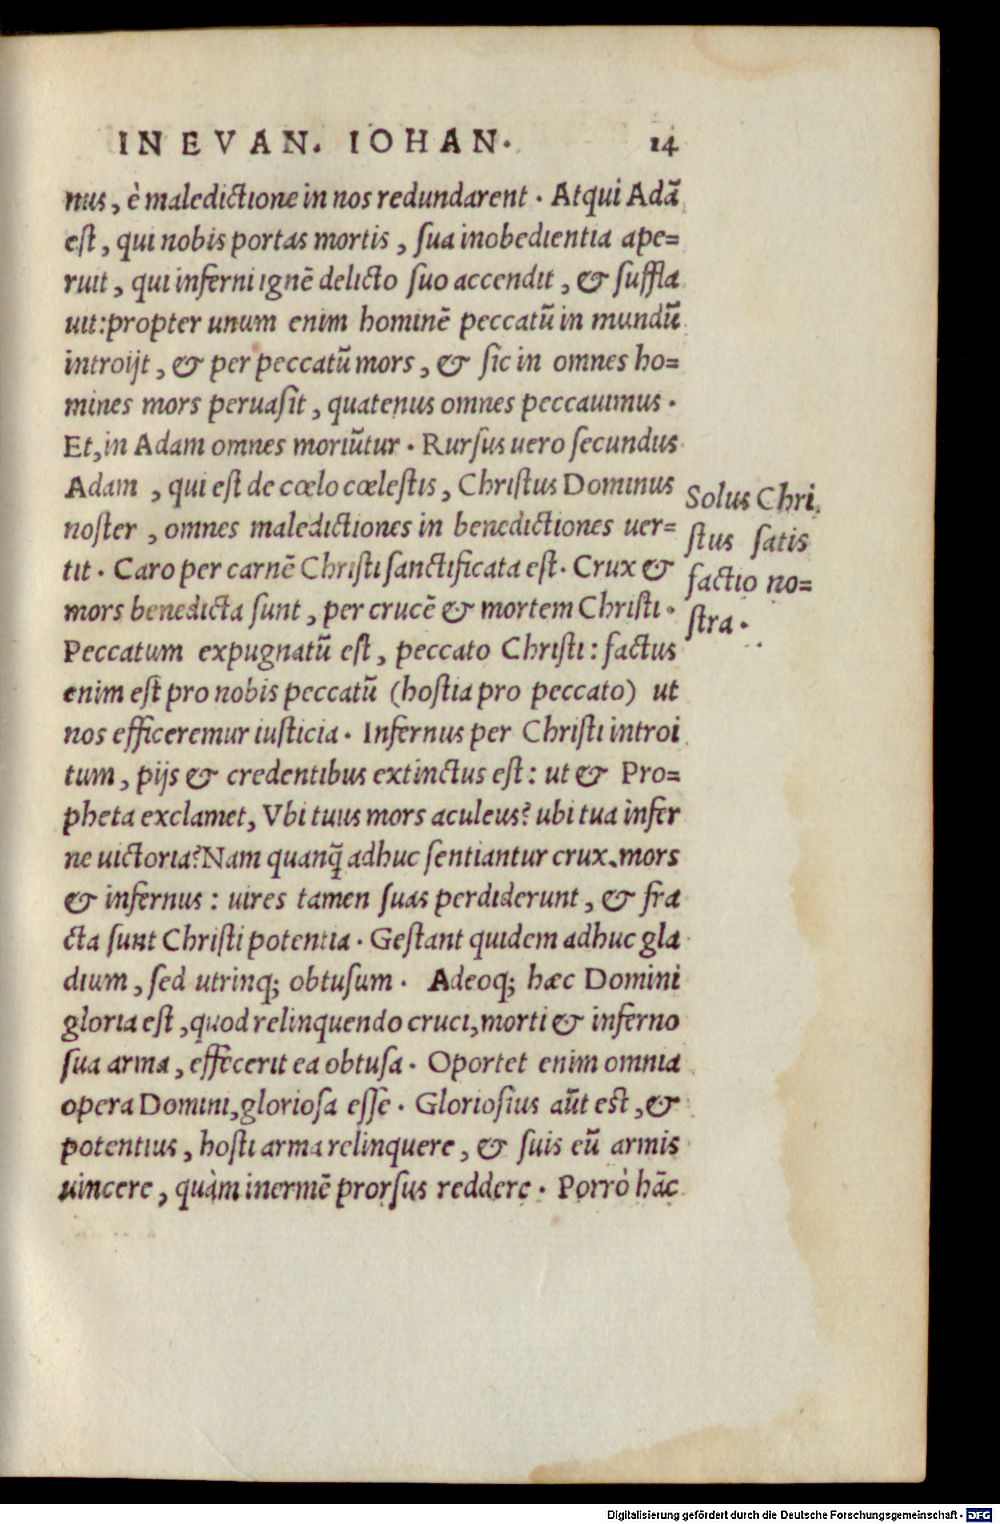 IN EVAN. IOHAN. 14
nus, è maledictione in nos redundarent. Atqui Adā
est, qui nobis portas mortis, sua inobedientia ape=
ruit, qui inferni ignē delicto suo accendit, & suffla
uit: propter unum enim hominē peccatū in mundū
introijt, & per peccatū mors, & sic in omnes ho=
mines mors peruasit, quatenus omnes peccauimus.
Et, in Adam omnes moriūtur. Rursus uero secundus
Adam, qui est de cœlo cœlestis, Christus Dominus
noster, omnes maledictiones in benedictiones uer=
tit. Caro per carnē Christi sanctificata est. Crux &
mors benedicta sunt, per crucē & mortem Christi.
Peccatum expugnatū est, peccato Christi: factus
enim est pro nobis peccatū (hostia pro peccato) ut
nos efficeremur iusticia. Infernus per Christi introi
tum, pijs & credentibus extinctus est: ut & Pro=
pheta exclamet, Vbi tuus mors aculeus? ubi tua infer
ne uictoria? Nam quanq̄ adhuc sentiantur crux, mors
& infernus: uires tamen suas perdiderunt, & fra
cta sunt Christi potentia. Gestant quidem adhuc gla
dium, sed utrinq; obtusum. Adeoq; hæc Domini
gloria est, quod relinquendo cruci, morti & inferno
sua arma, effecerit ea obtusa. Oportet enim omnia
opera Domini, gloriosa esse. Gloriosius aūt est, &
potentius, hosti arma relinquere, & suis eū armis
uincere, quàm inermē prorsus reddere. Porrò hāc
Solus Chri
stus satis
factio no=
stra.
Digitalisierung gefördert durch die Deutsche Forschungsgemeinschaft - DFG